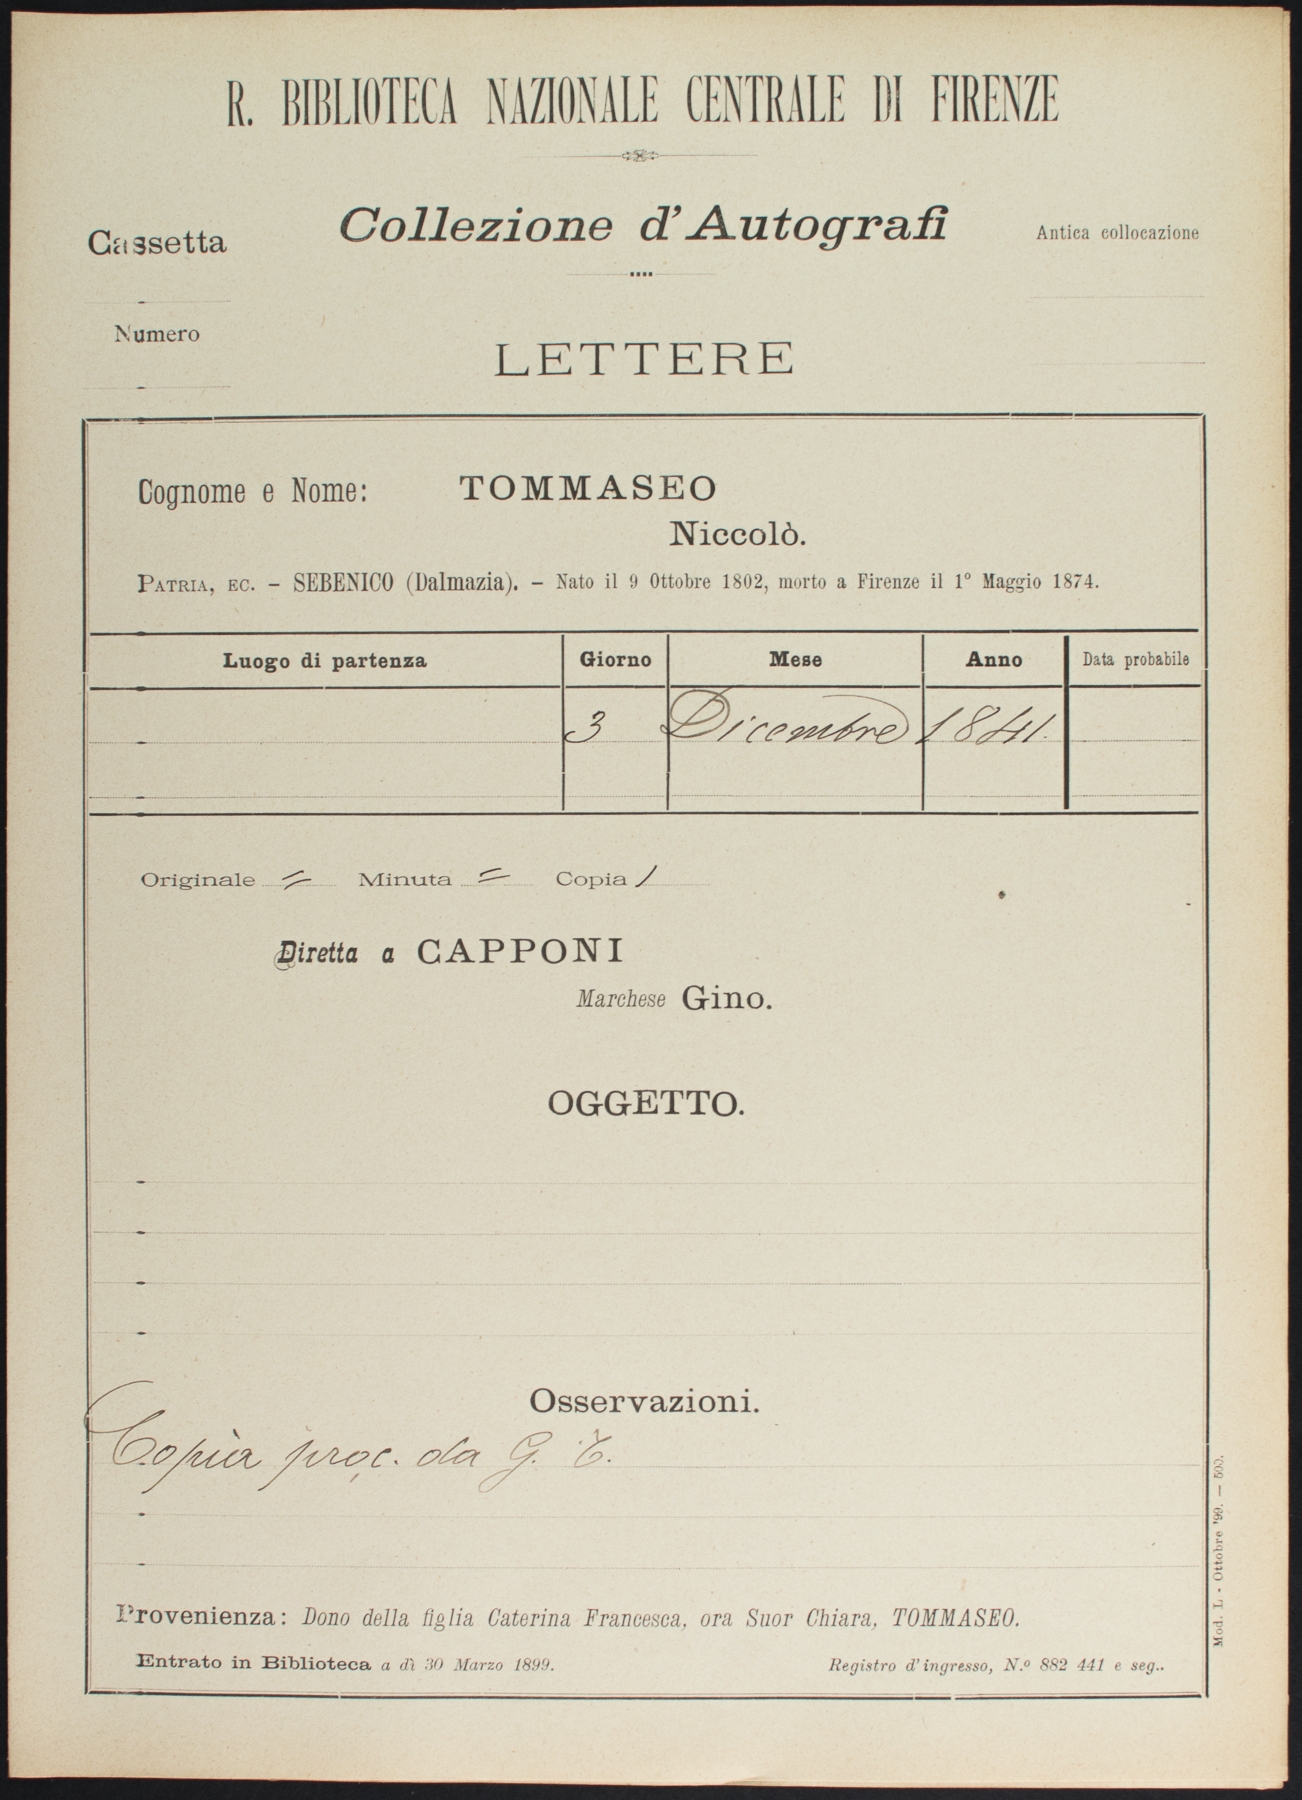 R. BIBLIOTECA NAZIONALE CENTRALE DI FIRENZE
Cassetta
Collezione d'Autografi
Antica collocazione
Numero
LETTERE
Cognome e Nome: TOMMASEO
Niccolò.
PATRIA, EC. – SEBENICO (Dalmazia). – Nato il 9 Ottobre 1802, morto a Firenze il 1º Maggio 1874.
Luogo di partenza Giorno Mese Anno Data probabile
3 Dicembre 1841.
Originale = Minuta = Copia 1
Diretta a CAPPONI
Marchese Gino.
OGGETTO.
Osservazioni.
Copia proc. da G. T.
Provenienza: Dono della figlia Caterina Francesca, ora Suor Chiara, TOMMASEO.
Entrato in Biblioteca a dì 30 Marzo 1899. Registro d'ingresso, N.º 882 441 e seg..
Mod. L - Ottobre '99. — 500.